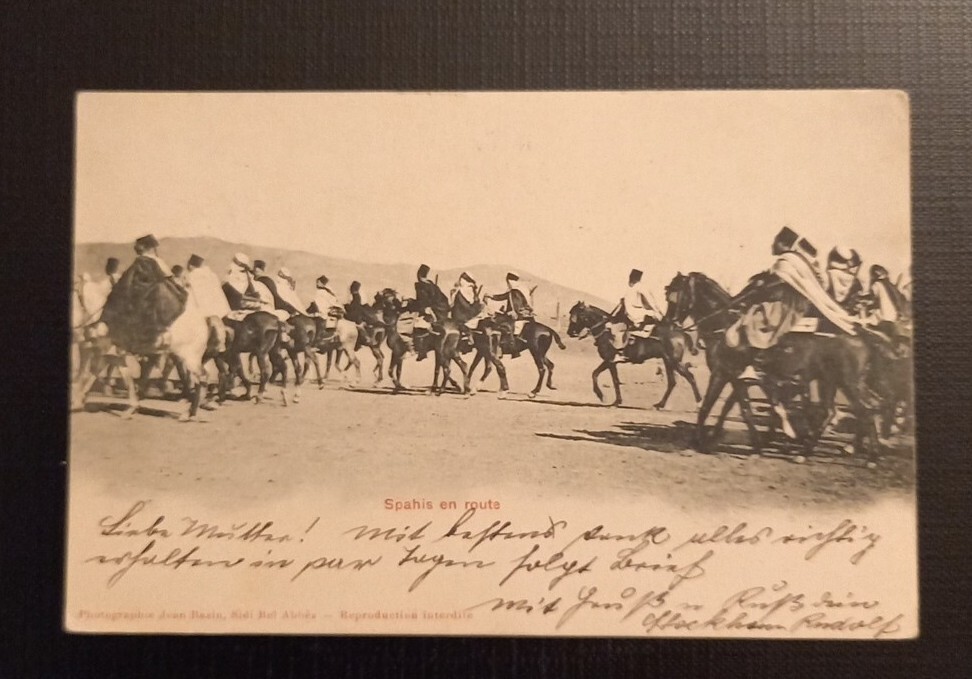 Spahis en route
Liebe Mutter! mit bestens Dank alles richtig
erhalten in par Tagen folgt Brief
mit Gruß u Kuß dein
Rudolf
Photographie Jean Bazin, Sidi Bel Abbès — Reproduction interdite